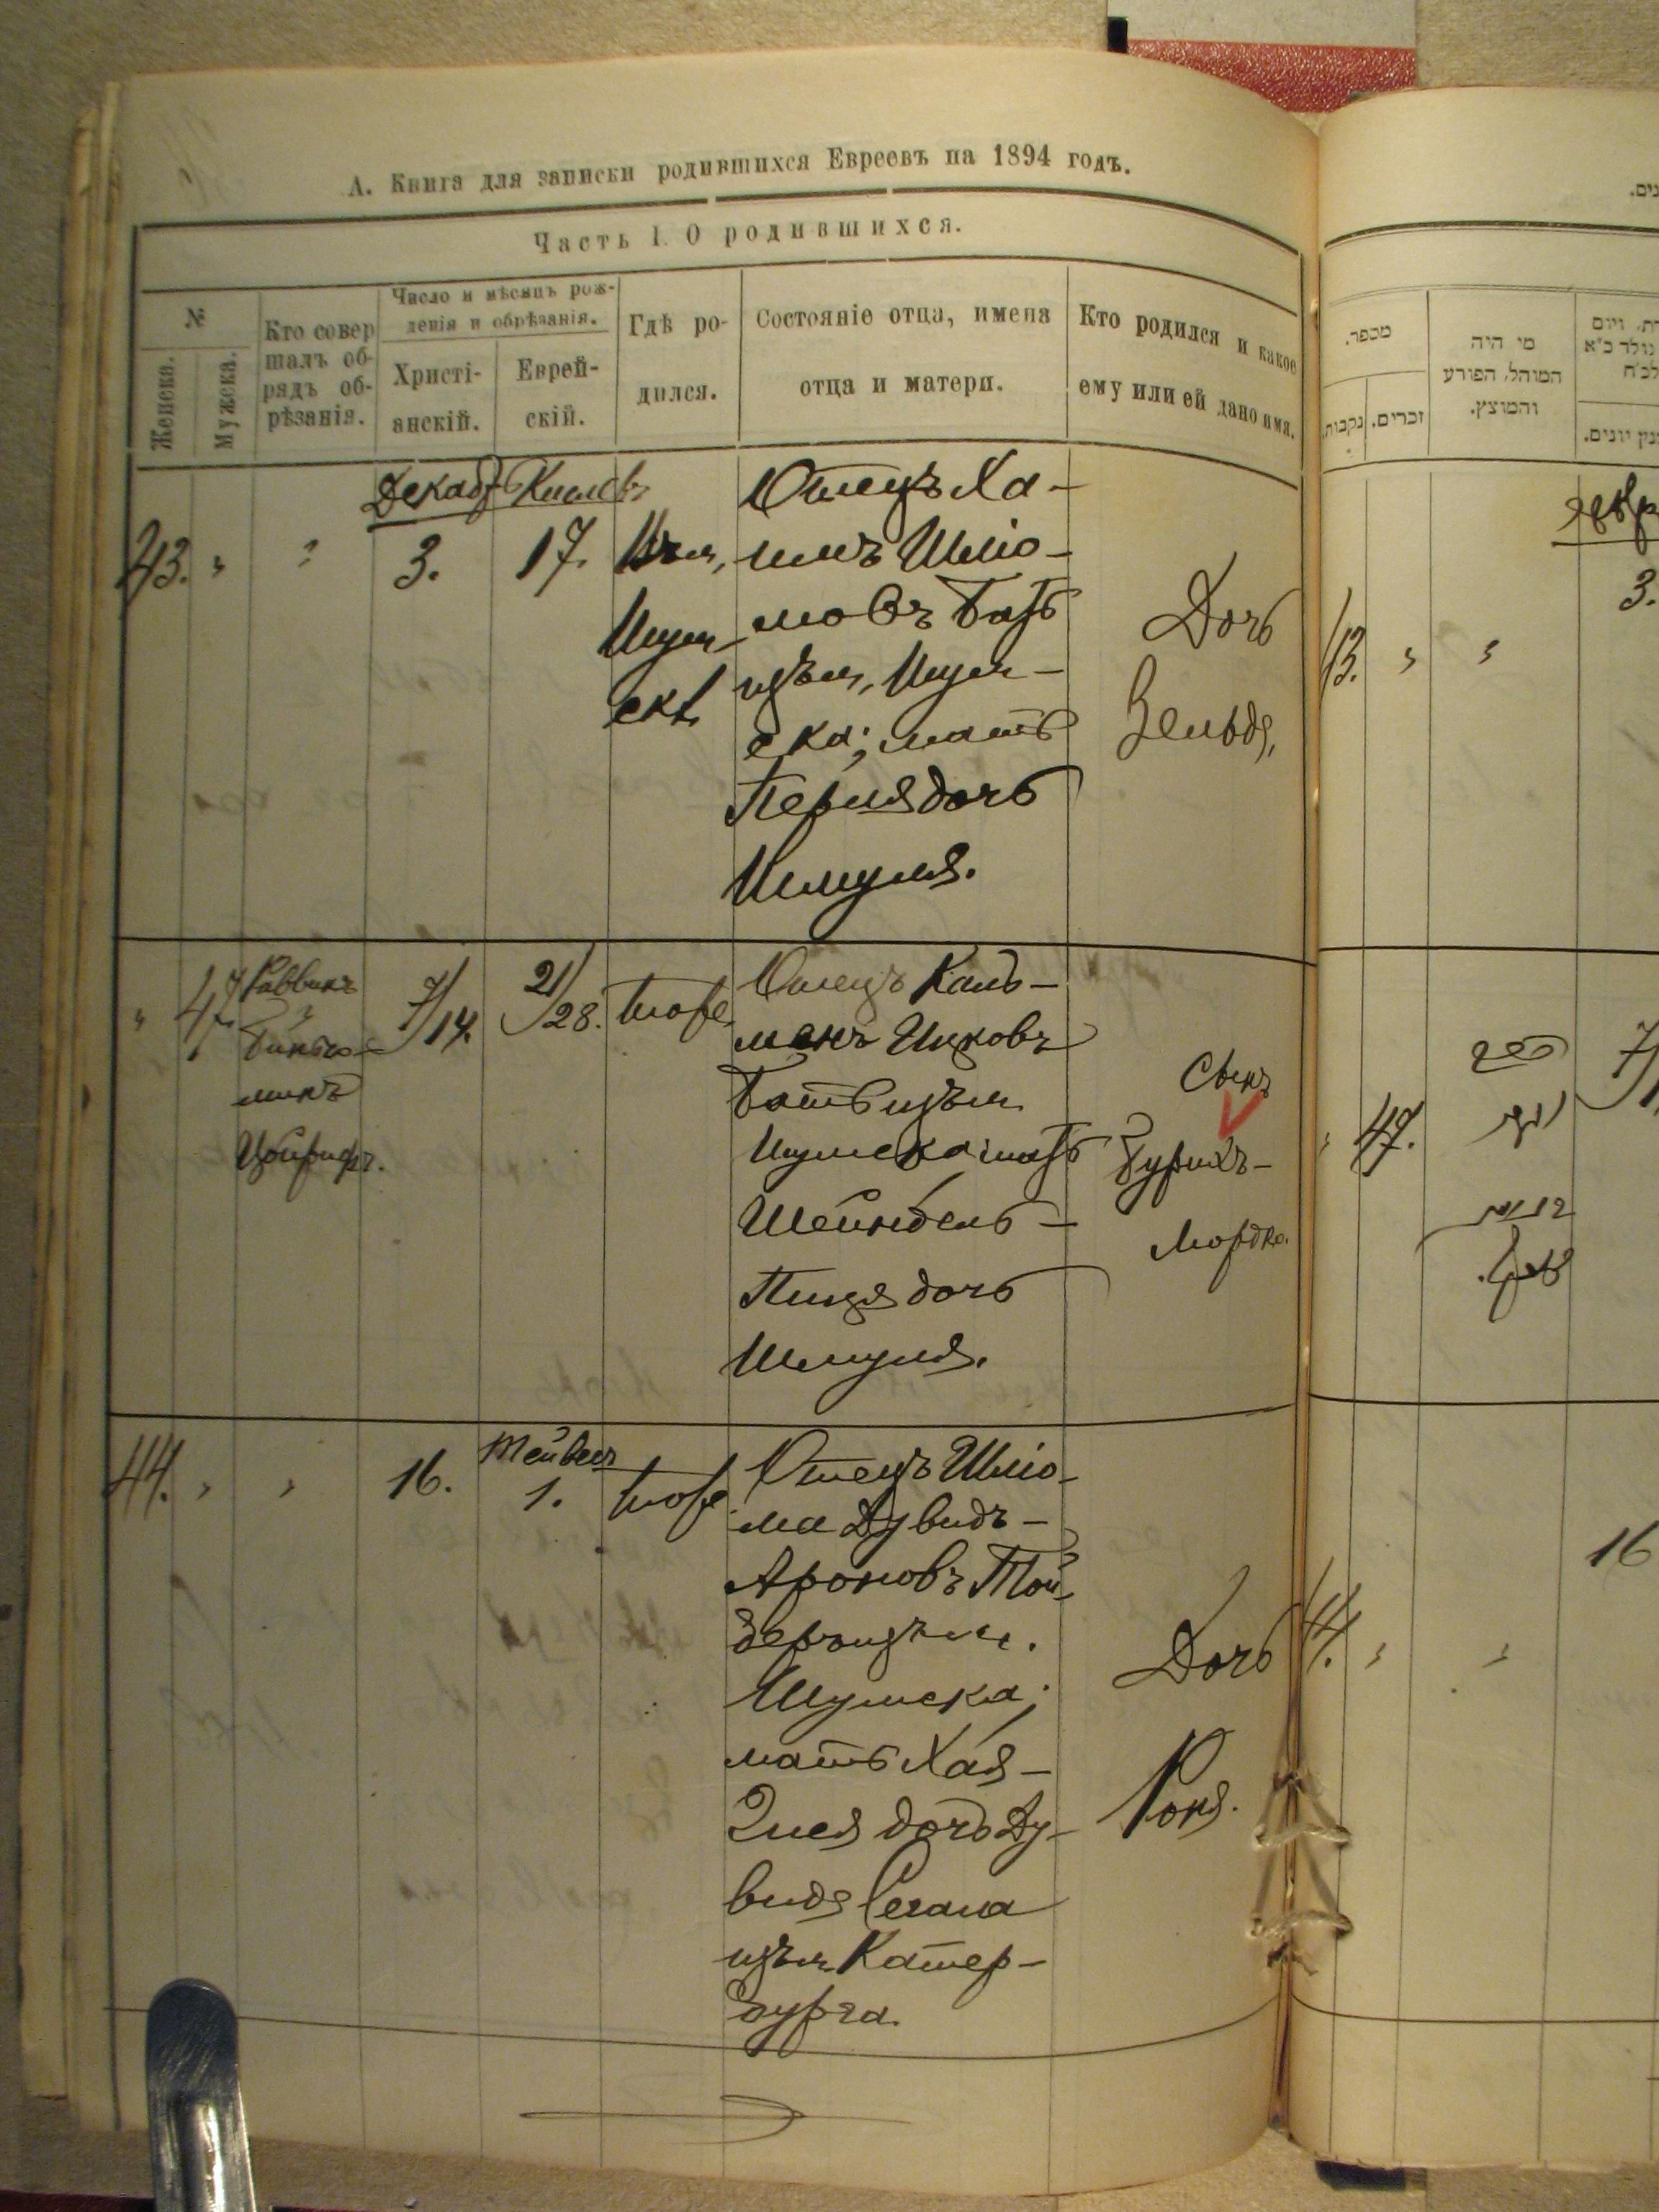 А. Книга для записки родившихся Евреевъ на 1894 годъ.
Часть I. О родившихся.
№
Женска.
Мужеска.
Кто совер
шалъ об-
рядъ об-
рѣзанія.
Число и мѣсяцъ рож-
денія и обрѣзанія.
Христі-
анскій.
Еврей-
скій.
Гдѣ ро-
дился.
Состояніе отца, имена
отца и матери.
Кто родился и какое
ему или ей дано имя.
Декаб. Кислевъ
43. " " 3. 17.
Шум
скѣ
Отецъ Ха-
имъ Шліо-
мовъ Батъ
изъ м. Шум-
ска; мать
Перля дочь
Шмуля.
Дочь
Зельда,
" 47.
Раввинъ
Биньо-
минъ
7/14. 21/28. тоже
Отецъ Каль-
манъ Ицковъ
Бать изъ м.
Шумска мать
Шейндель-
Песя дочь
Шмуля.
Сынъ
Бурихъ-
Мордко.
44. " " 16.
Тейвесъ
1. тоже
Отецъ Шліо-
ма Дувидъ-
Ароновъ Той
деръ изъ м.
Шумска;
мать Хая-
Элея дочь Ду-
вида Сегала
изъ м. Катер-
бурга.
Дочь
Роня.
מספר.
נקבות.
זכרים.
מי היה
המוהל, הפורע
והמוצץ.
3.
43. " "
47.
44. " "
16